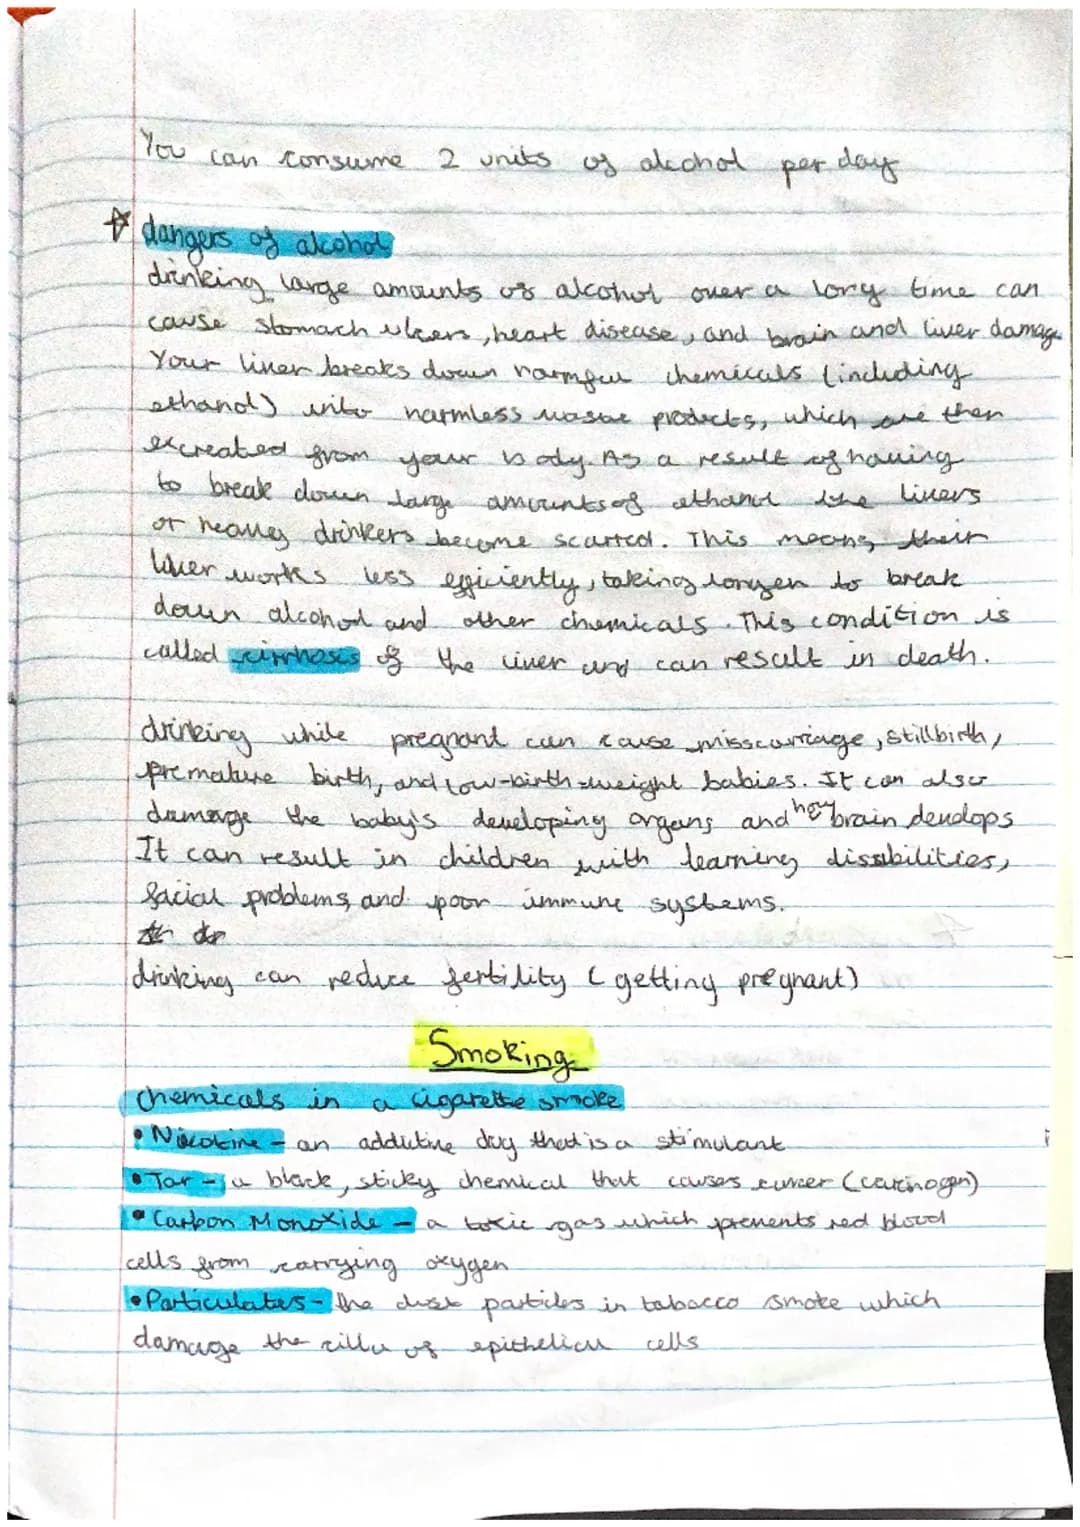 You can consume 2 units of alcohol per day
dangers of alcohol
drinking large amounts of alcohol over a long time can
cause stomach ulcers, heart disease, and brain and liver damage
Your liver breaks down harmful chemicals (including
ethanol) into harmless waste products, which are then
excreated from your body. As a result of having
to break down large amounts of ethanol the livers
or heavey drinkers become scarred. This means their
liver works less efficiently, taking longer to break
down alcohol and other chemicals. This condition is
called cirrhosis of the liver and can result in death.
drinking while pregnant can cause misscarriage, stillbirth,
premature birth, and low-birth-weight babies. It can also
damage the baby's developing organs and how brain develops
It can result in children with learning dissabilities,
facial problems, and poor immune systems.
drinking can reduce fertility (getting pregnant)
Smoking
Chemicals in a cigarette smoke
• Nicotine - an addictive drug that is a stimulant
• Tar - a black, sticky chemical that causes cancer (carcinogen)
• Carbon Monoxide - a toxic gas which prevents red blood
cells from carrying oxygen
• Particulates - the dust particles in tobacco smoke which
damage the cilla of epithelial cells